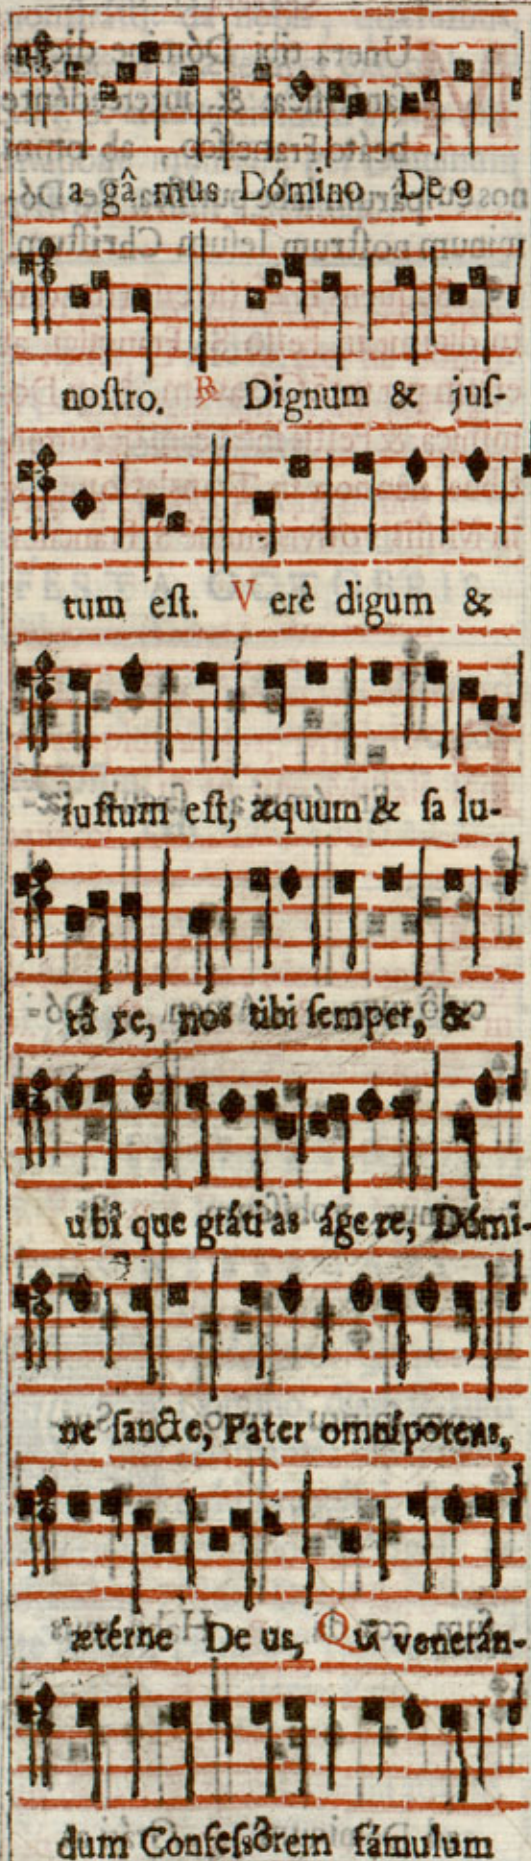 a gâ mus Dómino De o
noſtro. ℟ Dignum & juſ-
tum eſt. V erè digum &
iuſtum eſt, æquum & ſa lu-
tâ re, nos tibi ſemper, &
ubi que gráti as áge re, Dómi-
ne ſancte, Pater omnipotens,
ætérne De us, Qui venerán-
dum Confeſsôrem fámulum